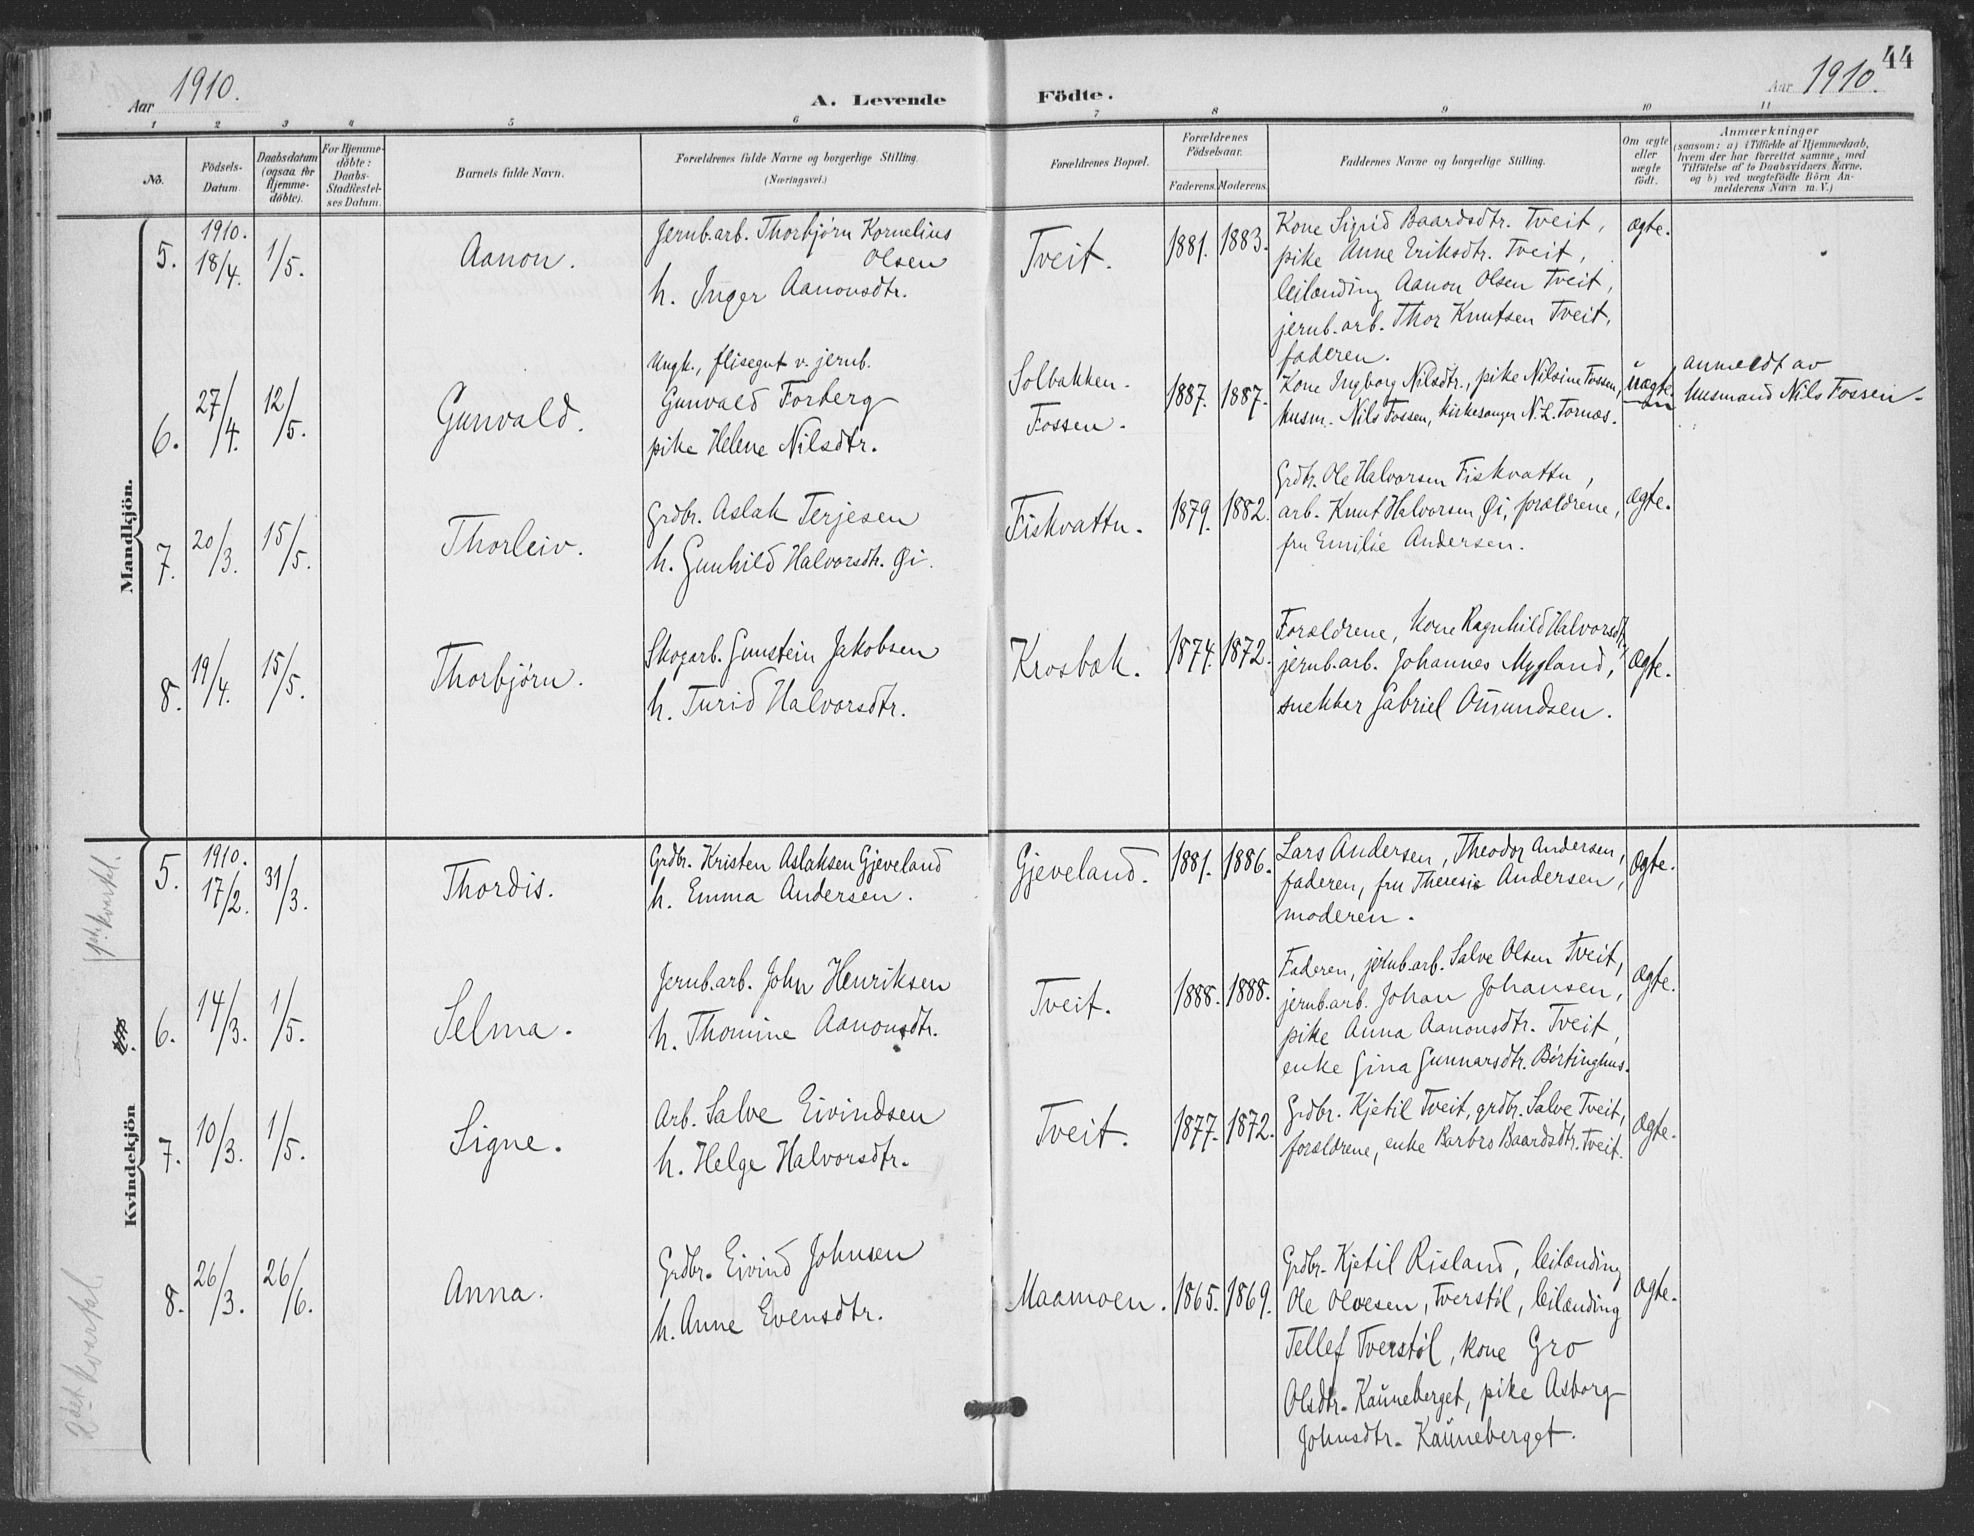 Aar 1910.
A. Levende Födte.
Aar 1910.
44
1 2 3 4 5 6 7 8 9 10 11
No.
Födsels-
Datum.
Daabsdatum
(ogsaa for
Hjemme-
döbte).
For Hjemme-
döbte:
Daabs-
Stadfæstel-
ses Datum.
Barnets fulde Navn.
Forældrenes fulde Navne og borgerlige Stilling.
(Næringsvei.)
Forældrenes Bopæl.
Forældrenes
Födselsaar.
Faderens. Moderens.
Faddernes Navne og borgerlige Stilling.
Om ægte
eller
uægte
födt.
Anmærkninger
(saasom: a) i Tilfælde af Hjemmedaab,
hvem der har forrettet samme, med
Tilföielse af to Daabsvidners Navne.
og b) ved uægtefödte Börn An-
melderens Navn m. V.)
Mandkjön.
5.
1910.
18/4.
1/5.
Aanon.
Jernb.arb. Thorbjørn Kornelius
Olsen
h. Inger Aanonsdtr.
Tveit.
1881.
1883.
Kone Sigrid Baardsdtr. Tveit,
pike Anne Eriksdtr. Tveit,
leilænding Aanon Olsen Tveit,
jernb.arb. Thor Knutsen Tveit,
faderen.
ægte.
6.
27/4.
12/5.
Gunvald.
Ungk., flisegut v. jernb.
Gunvald Forberg
pike Helene Nilsdtr.
Solbakken.
Fossen.
1887.
1887.
Kone Ingborg Nilsdtr., pike Nilsine Fossen,
husm. Nils Fossen, kirkesanger N. L. Tornæs.
uægte.
anmeldt av
husmand Nils Fossen.
7.
20/3.
15/5.
Thorleiv.
Grdbr. Aslak Terjesen
h. Gunhild Halvorsdtr. Øi.
Fiskvattn.
1879.
1882.
Grdbr. Ole Halvorsen Fiskvattn,
arb. Knut Halvorsen Øi, forældrene,
fru Emilie Andersen.
ægte.
8.
19/4.
15/5.
Thorbjørn.
Skogarb. Gunstein Jakobsen
h. Turid Halvorsdtr.
Krosbæk.
1874.
1872.
Forældrene, kone Ragnhild Halvorsdtr,
jernb.arb. Johannes Mygland,
snekker Gabriel Omundsen.
ægte.
Kvindekjön
1ste kvartal.
2det kvartal.
5.
1910.
17/2.
31/3.
Thordis.
Grdbr. Kristen Aslaksen Gjeveland
h. Emma Andersen.
Gjeveland.
1881.
1886.
Lars Andersen, Theodor Andersen,
faderen, fru Theresie Andersen,
moderen.
ægte.
6.
14/3.
1/5.
Selma.
Jernb.arb. John Henriksen
h. Thomine Aanonsdtr.
Tveit.
1888.
1888.
Faderen, jernb.arb. Salve Olsen Tveit,
jernb.arb. Johan Johansen,
pike Anna Aanonsdtr. Tveit,
enke Gina Gunnarsdtr. Børtinghus.
ægte.
7.
10/3.
1/5.
Signe.
Arb. Salve Eivindsen
h. Helge Halvorsdtr.
Tveit.
1877.
1872.
Grdbr. Kjetil Tveit, grdbr. Salve Tveit,
forældrene, enke Barbro Baardsdtr. Tveit.
ægte.
8.
26/3.
26/6.
Anna.
Grdbr. Eivind Johnsen
h. Anne Evensdtr.
Maamoen.
1865.
1869.
Grdbr. Kjetil Risland, leilænding
Ole Olvesen, Tverstøl, leilænding
Tellef Tverstøl, kone Gro
Olsdtr. Kauneberget, pike Asborg
Johnsdtr. Kauneberget.
ægte.